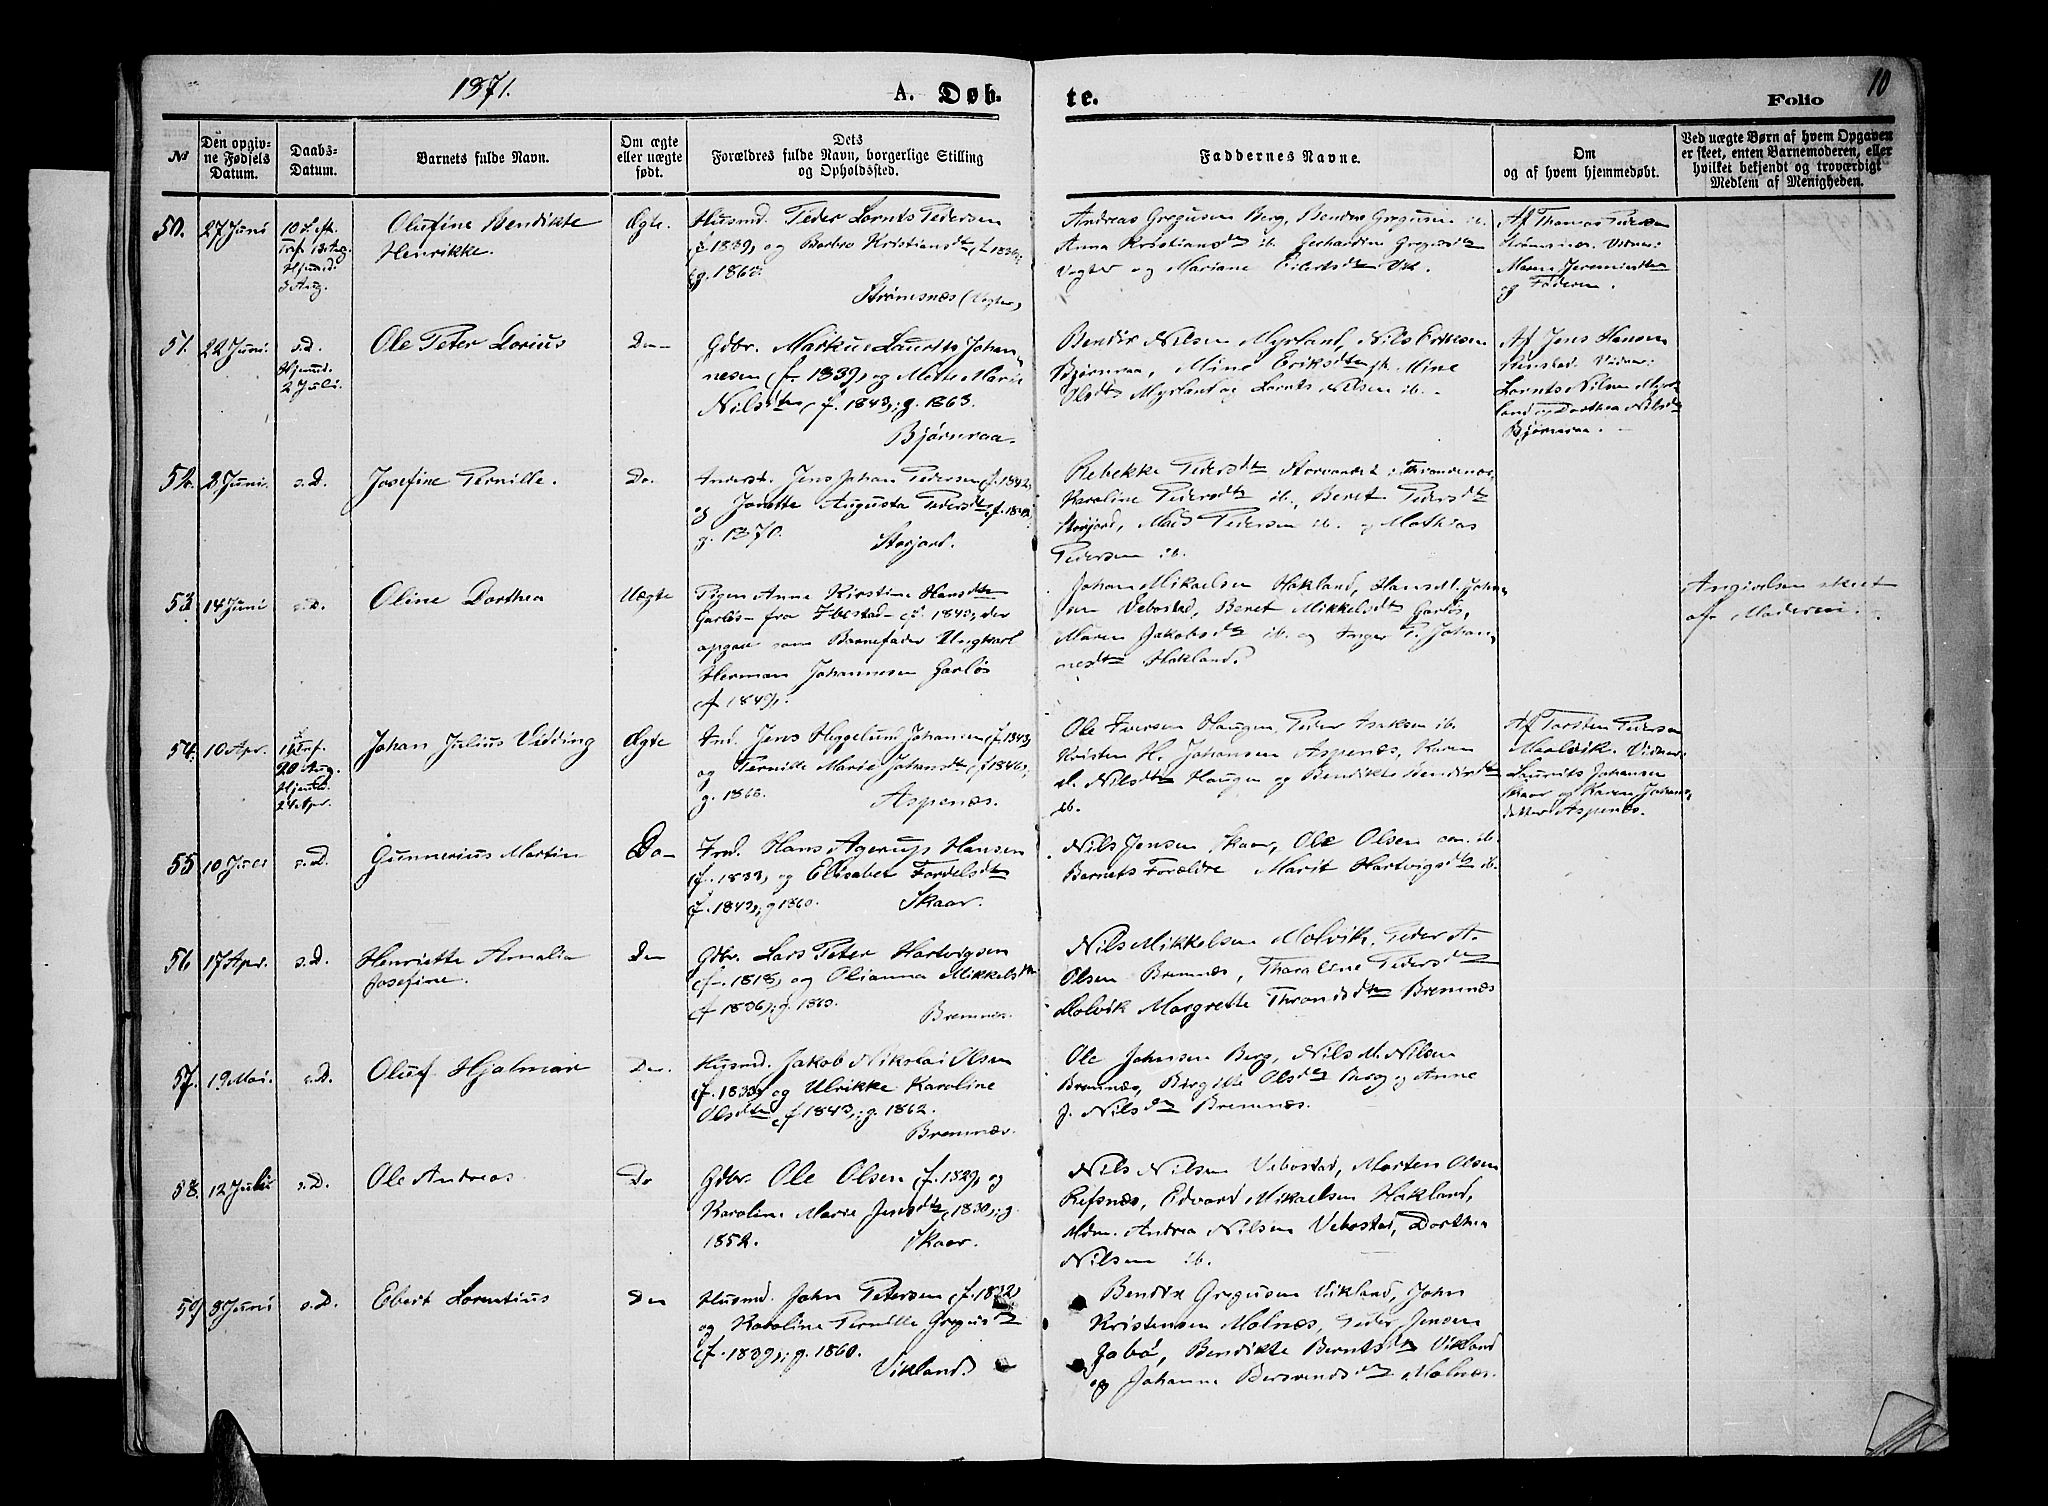 1871.
A. Døb-
te.
Folio
10
№
Den opgiv-
ne Fødsels
Datum.
Daabs-
Datum.
Barnets fulde Navn.
Om ægte
eller uægte
født.
Dets
Forældres fulde Navn, borgerlige Stilling
og Opholdssted.
Faddernes Navne.
Om
og af hvem hjemmedøbt.
Ved uægte Børn af hvem Opgaven
er skeet, enten Barnemoderen, eller
hvilket bekjendt og troværdigt
Medlem af Menigheden.
50.
27 Juni
10 S. eft.
Tref. 13 Aug.
Hjemd.
3 Aug.
Olufine Bendikte
Henrikke.
Ægte.
Husmd. Peder Lornts Pedersen
(f. 1839) og Barbro Kristiansdtr (f. 1836);
g. 1860.
Strømsnæs
Andreas Gregusen Berg, Bendix Gregusen ib.
Anna Kristiansdtr ib. Gerhardine Gregusdtr
og Mariane Eilertsdtr Vik.
Af Thomas Pedersen
Strømsnæs. Vidner:
Maren Jeremiasdtr
og Faderen.
51.
22 Juni.
s.D.
Hjemd.
2 Juli.
Ole Peter Lorius
Do-
Gdbr. Markus Laurits Johan-
nesen (f. 1839) og Mette Marie
Nilsdtr (f. 1843); g. 1863.
Bjørnraa.
Bendix Nilsen Myrland, Nils Eriksen
Bjørnraa, Mine Eriksdtr ib. Mine
Olsdtr Myrland og Lornts Nilsen ib.
Af Jens Hansen
Vidner:
Lornts Nilsen Myr-
land og Dorthea Nilsdtr
Bjørnraa.
52.
2 Juni.
s.D.
Josefine Pernille.
Do.
Jens Johan Pedersen (f. 1842)
og Augusta Pedersdtr
g. 1870.
Storjord.
Rebekke Pedersdtr Storvandet i Throndenæs,
Karoline Pedersdtr ib., Beret Pedersdtr
Storjord, Mads Pedersen ib. og Mathias
Pedersen ib.
53.
14 Juni
s.D.
Oline Dorthea
Uægte
Pigen Anne Kirstine Hansdtr
Garløs fra Ibestad (f. 1843), der
opgav som Barnefader Ungkarl
Herman Johannesen Garløs
(f. 1849).
Johan Mikaelsen Hokland, Hans Johan-
sen Vebostad, Beret Mikkelsdtr Garløs,
Maren Jakobsdtr ib. og Inger P. Johan-
nesdtr Hokland.
Angivelsen skeet
af Moderen.
54.
10 Apr.
20 Aug.
Hjemd.
24 Apr.
Johan Julius Vidding
Ægte
Ind. Jens Heggelund Johansen (f. 1843)
og Pernille Marie Johansdtr (f. 1846);
g. 1868.
Aspenæs.
Ole Iversen Haugen, Peder Isaksen ib.
Kristen H. Johansen Aspenæs, Karen
Nilsdtr Haugen og Bendikte Bendixdtr
ib.
Af Torsten Pedersen
Molvik. Vidner:
Laurits Johansen
Skaar og Karen Johans-
datter Aspenæs.
55
10 Juli
s.D.
Gunnerius Martin
Do-
Ind. Hans Agerup Hansen
(f. 1833) og Elisabet Fordelsdtr
(f. 1843); g. 1860.
Skaar.
Nils Jensen Skaar, Ole Olsen ib.
Barnets Forældre Marit Hartvigsdtr ib.
56.
17 Apr.
s.D.
Henriette Amalia
Josefine.
Do
Gdbr. Lars Peter Hartvigsen
(f. 1818) og Olianna Mikkelsdtr
(f. 1836); g. 1860.
Bremnæs.
Nils Mikkelsen Molvik, Peder A.
Olsen Bremnæs, Tharaline Pedersdtr
Molvik Margrette Thronsdtr Bremnæs
57.
19 Mai.
s.D.
Oluf Hjalmar
Do.
Husmd. Jakob Nikolai Olsen
(f. 1838) og Ulrikke Karoline
Olsdtr (f. 1843); g. 1862.
Bremnæs.
Ole Johnsen Berg, Nils M. Nilsen
Bremnæs, Birgitte Olsdtr Berg og Anne
J. Nilsdtr Bremnæs.
58.
12 Juli
s.D.
Ole Andreas
Do
Gdbr. Ole Olsen (f. 1829) og
Karoline Marie Jensdtr (1830); g.
1852.
Skaar.
Nils Nilsen Vebostad, Morten Olsen
Refsnæs, Edvard Mikaelsen Hokland,
Mdm. Andrea Nilsen Vebostad, Dorthea
Nilsen ib.
59
8 Juni
s.D.
Ebert Lorentius
Do
Husmd. John Petersen (f. 1832)
og Karoline Pernille Gregusdtr
(f. 1839); g. 1860.
Vikland.
Bendix Gregusen Vikland, John
Kristensen Molnæs, Peder Jensen
Gabø, Bendikte Berntsdtr Vikland
og Johanna Bersvendsdtr Molnæs.